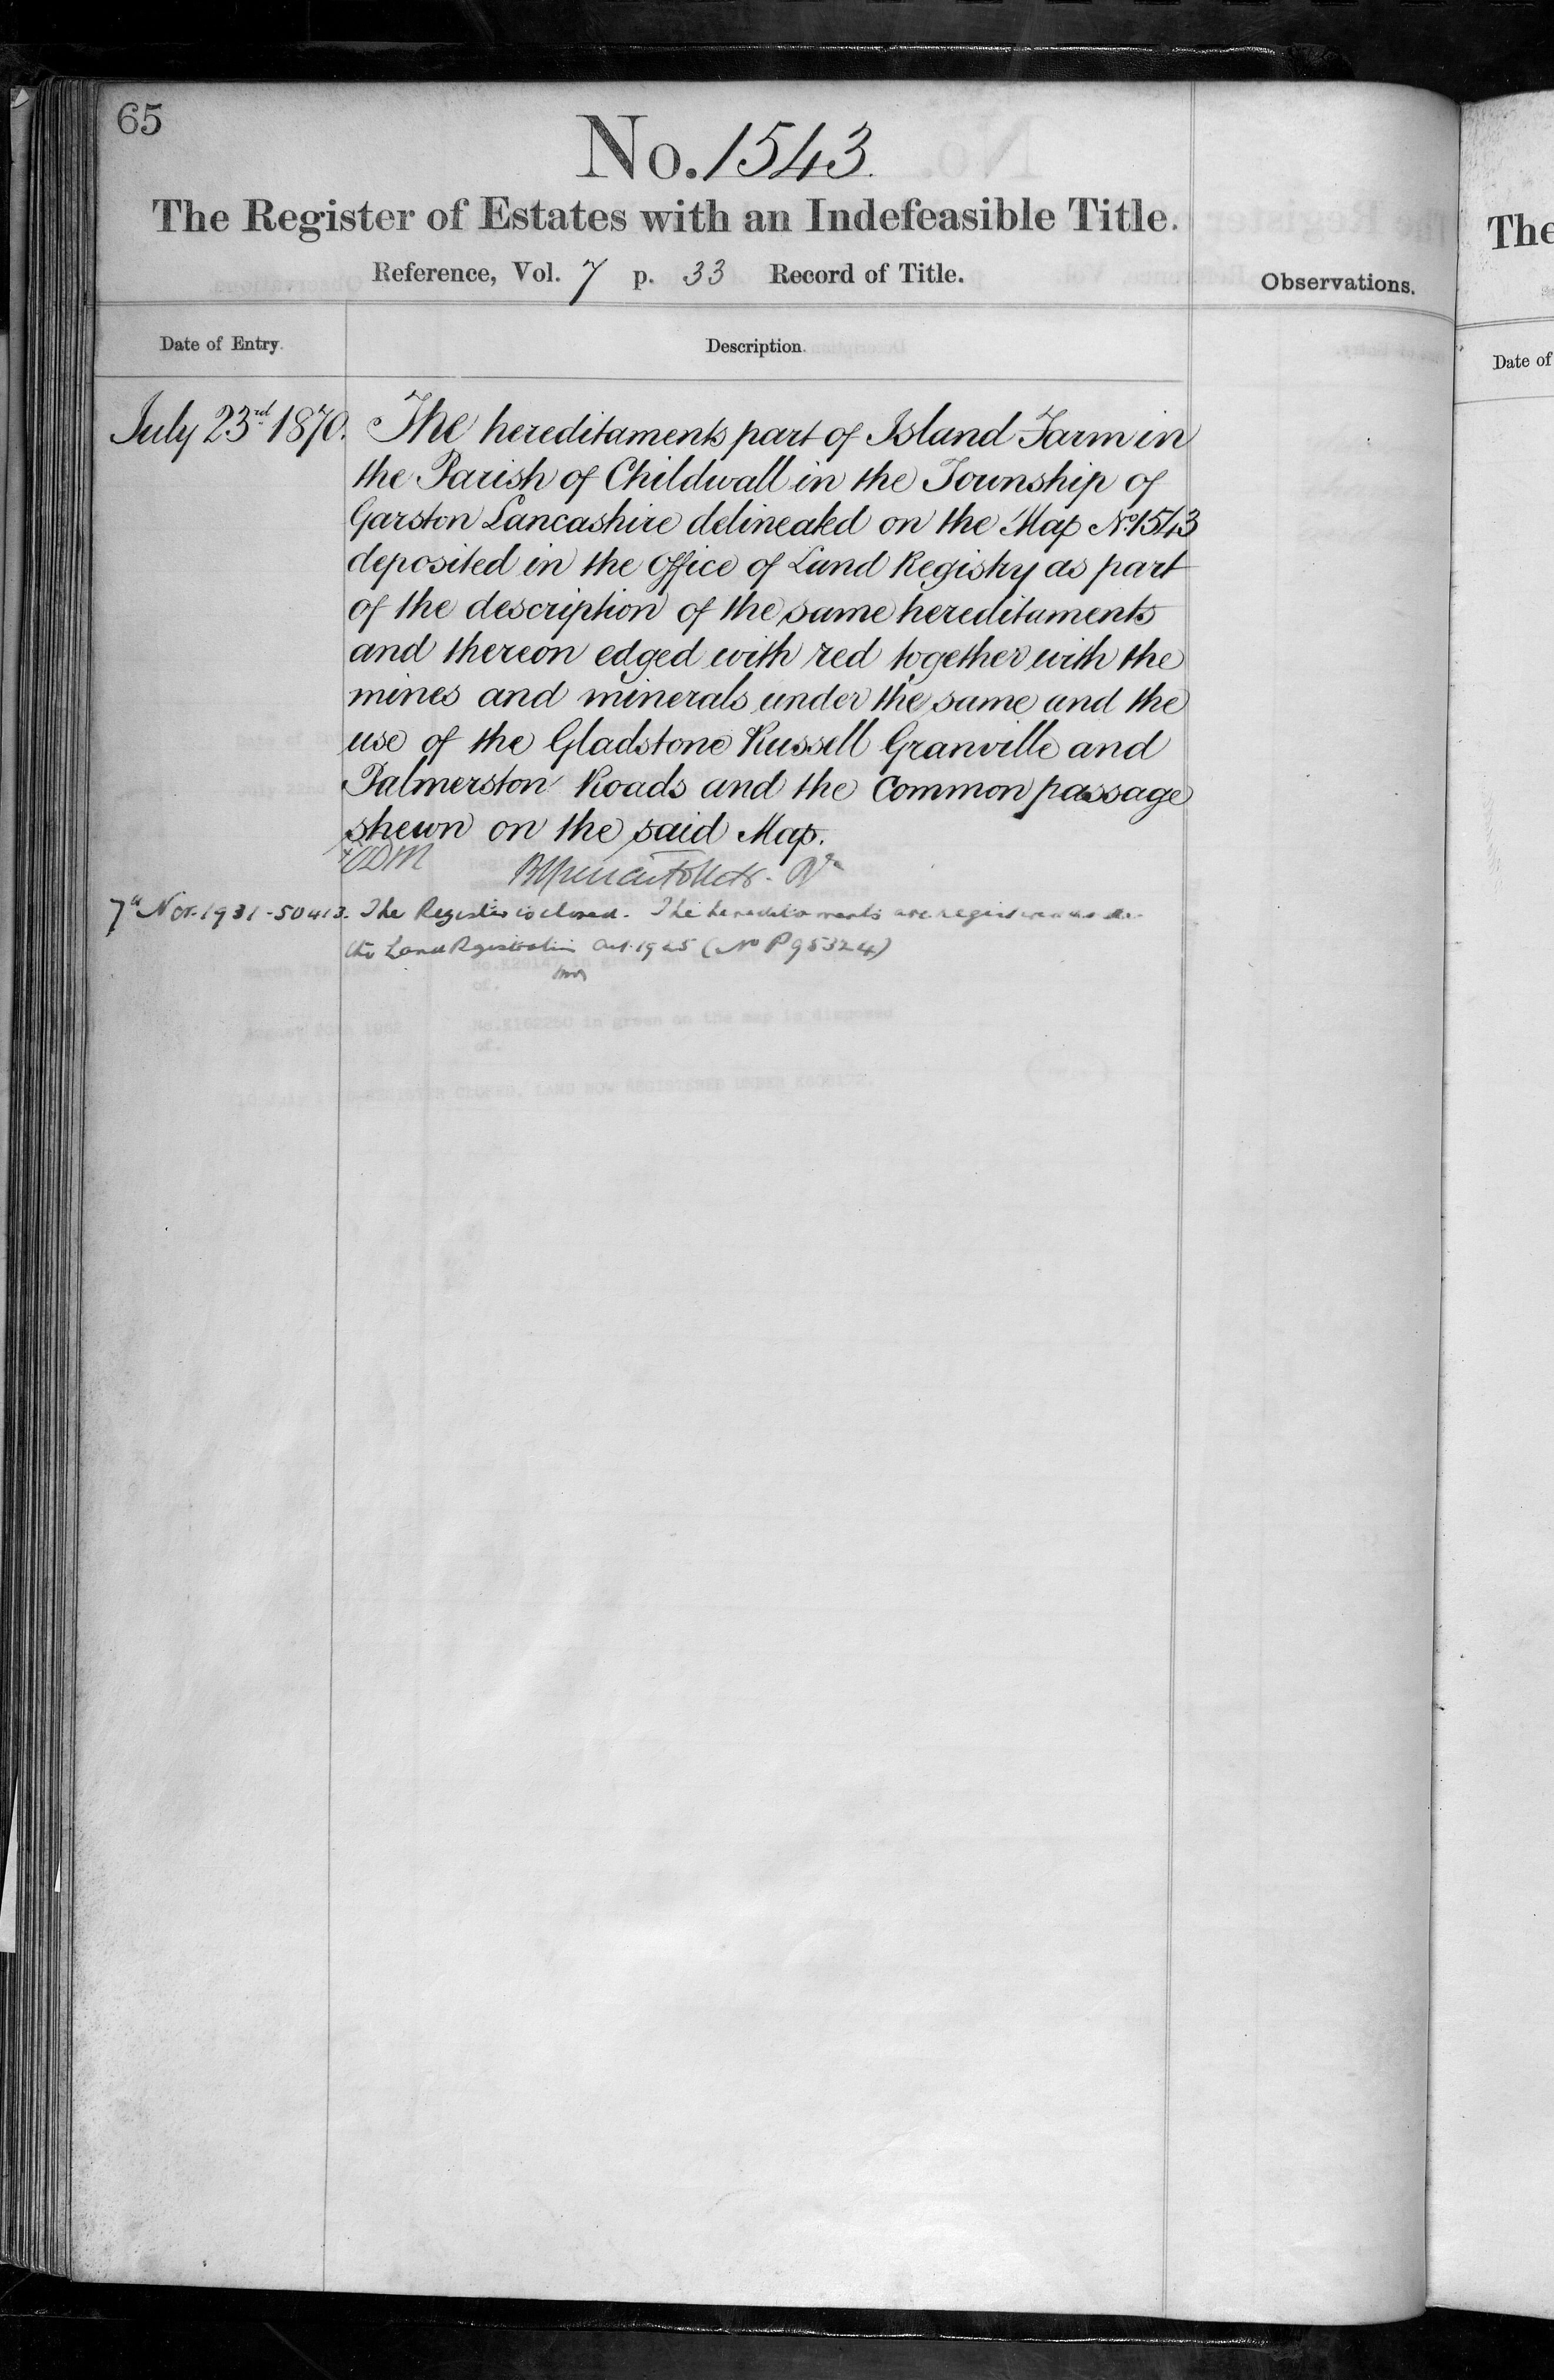 65
No. 1543.
The Register of Estates with an Indefeasible Title.
Reference, Vol. 7 p. 33 Record of Title.
Observations.
Date of Entry.
Description.
July 23rd 1870.
The hereditaments part of Island Farm in
the Parish of Childwall in the Township of
Garston Lancashire delineated on the Map No. 1543
deposited in the Office of Land Registry as part
of the description of the same hereditaments
and thereon edged with red together with the
mines and minerals under the same and the
use of the Gladstone Russell Granville and
Palmerston Roads and the Common passage
shewn on the said Map.
7th Nov. 1931 - 50413. The Register is closed. The hereditaments are registered under
the Land Registration Act. 1925 (No P95324)
The
Date of